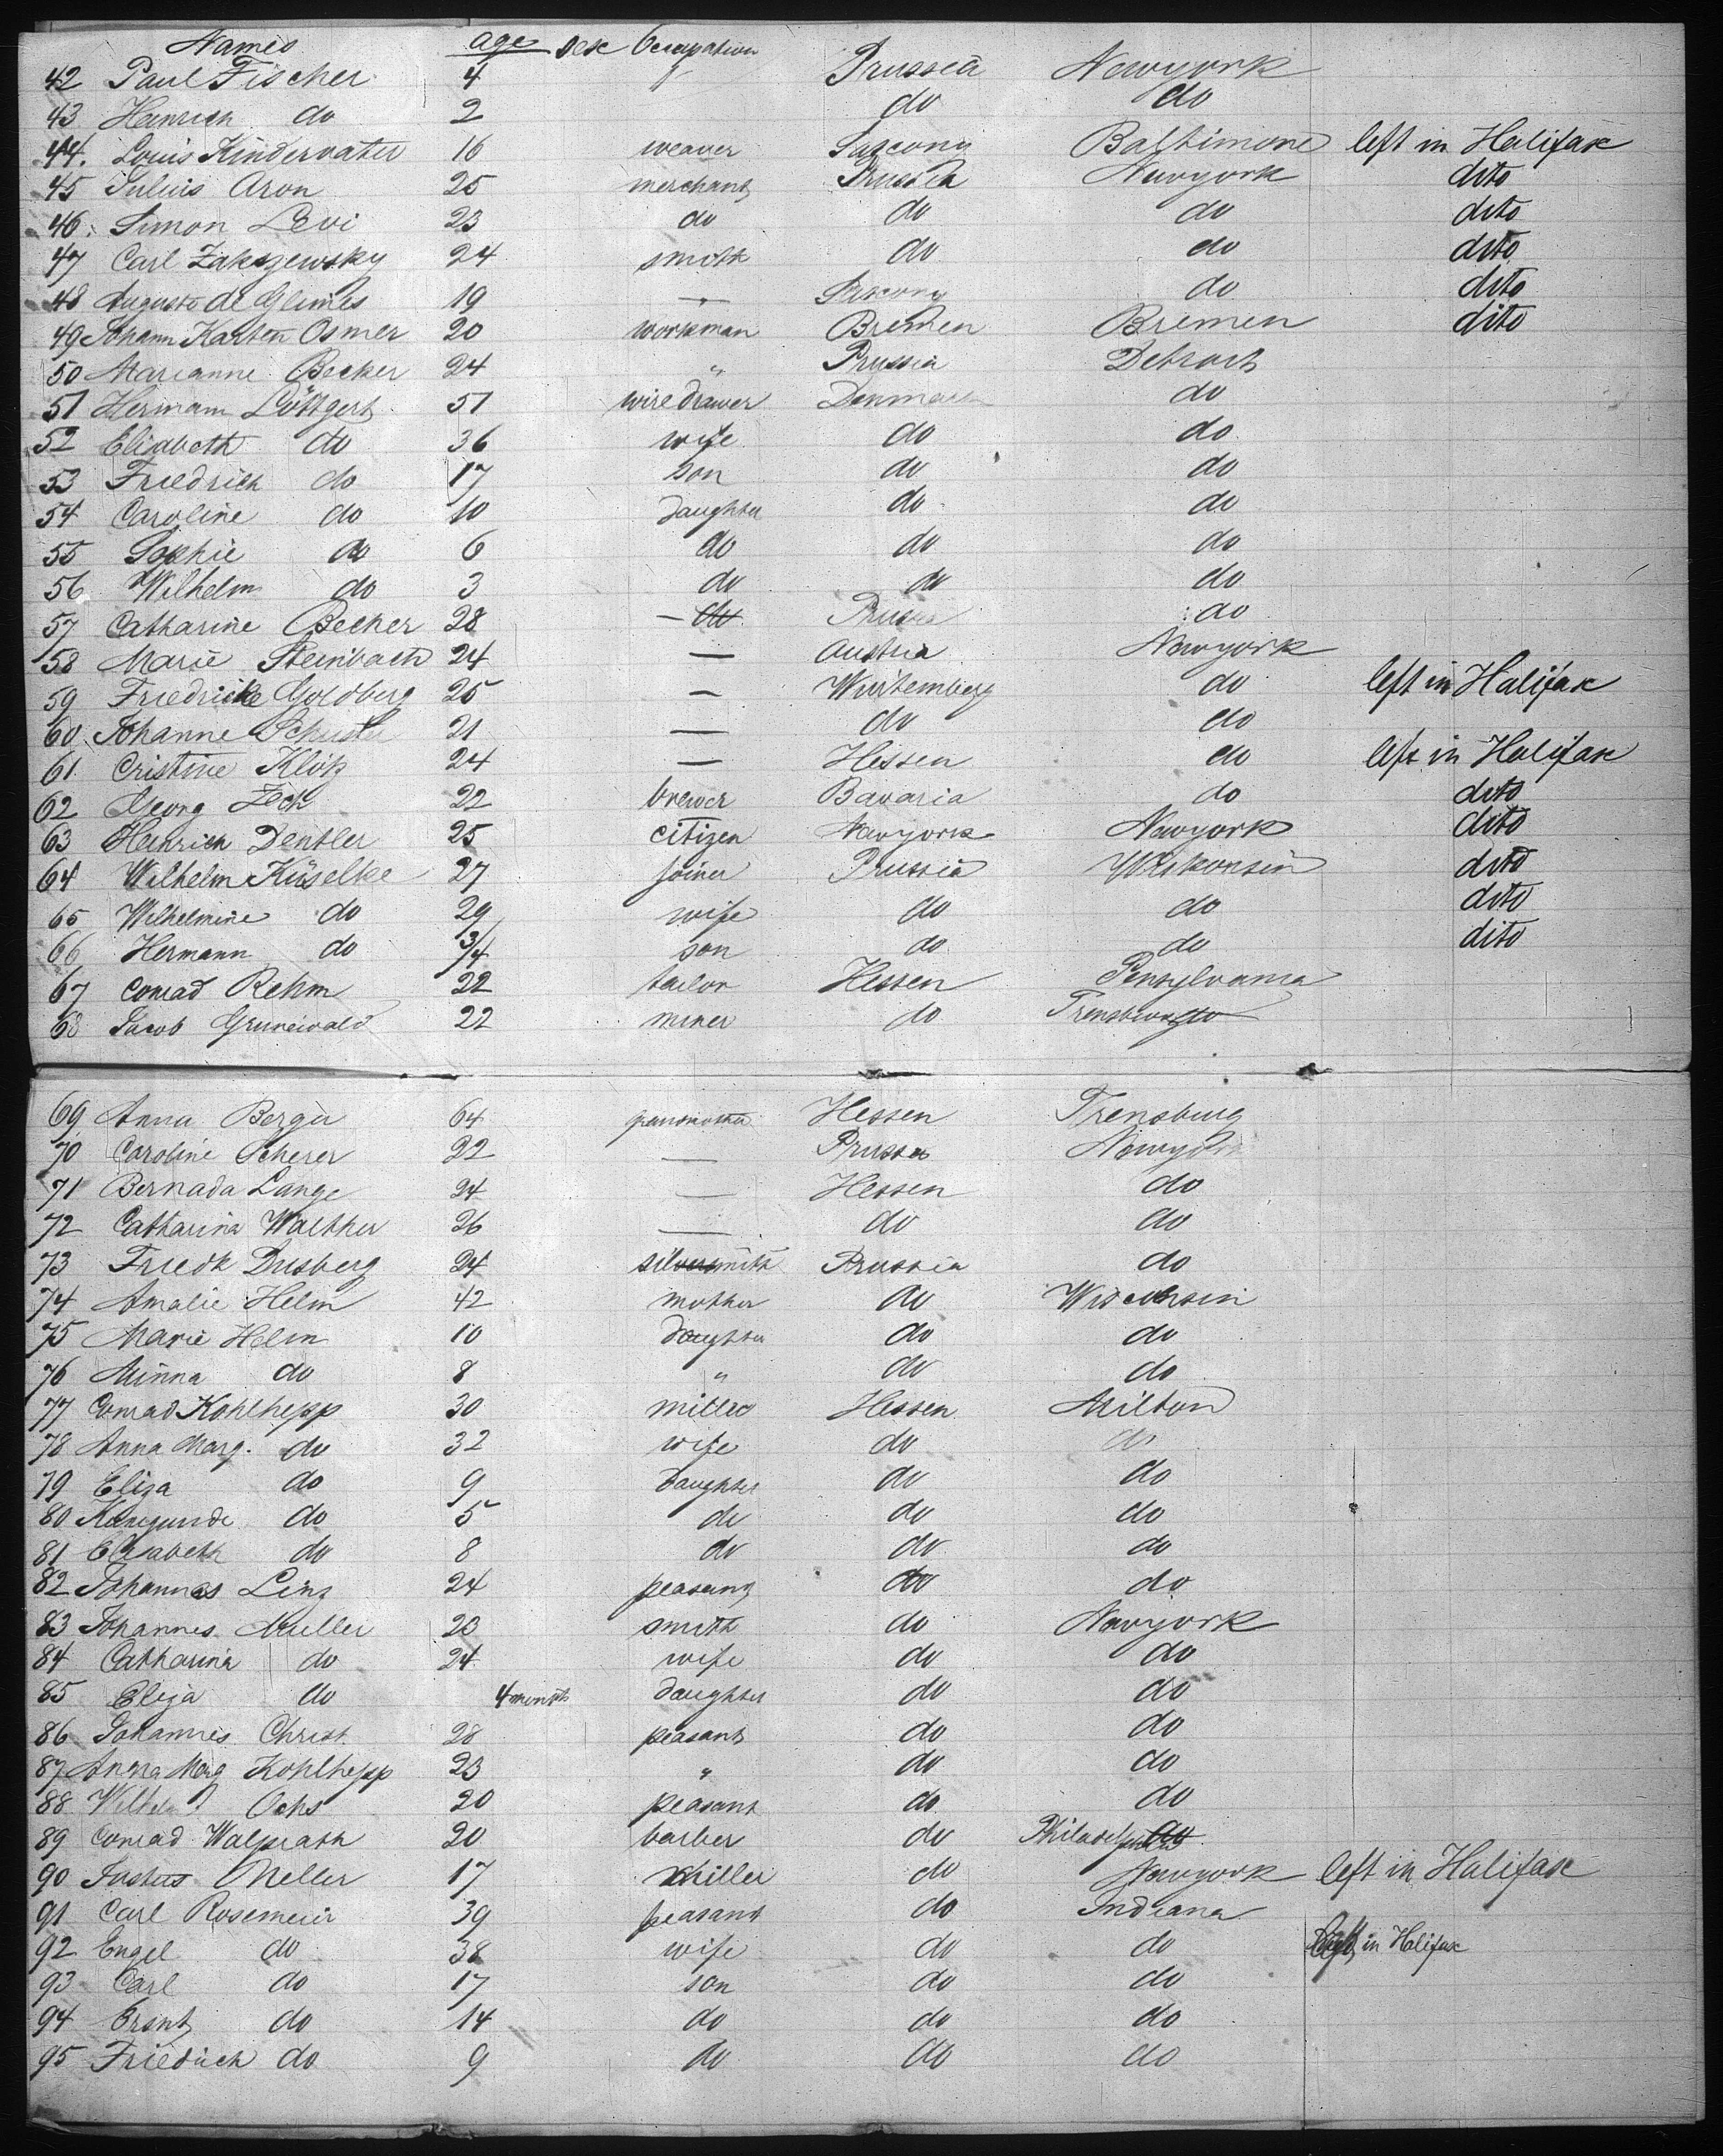 Names age sex Occupation
42 Paul Fischer 4 " Prussia Newyork
43 Heinrich do 2 do do
44. Louis Kindervater 16 weaver Saxony Baltimore left in Halifax
45 Julius Aron 25 merchant Prussia Newyork dito
46. Simon Levi 23 do do do dito
47 Carl Zakszewsky 24 smith do do dito
48 Auguste de Glimes 19 — Saxony do dito
49 Johann Karsten Osmer 20 workman Bremen Bremen dito
50 Marianne Becker 24 " Prussia Detroit
51 Hermann Löttgert 51 wiredrawer Denmark do
52 Elisabeth do 36 wife do do
53 Friedrich do 17 son do do
54 Caroline do 10 daughter do do
55 Sophie do 6 do do do
56 Wilhelm do 3 do do do
57 Catharine Becker 28 — do Prussia do
58 Marie Steinbach 24 — Austria Newyork
59 Friedricke Goldberg 25 — Wurtemberg do left in Halifax
60 Johanne Schuster 21 — do do
61 Cristine Klotz 24 — Hessen do left in Halifax
62 Georg Zech 22 brewer Bavaria do dito
63 Heinrich Dentler 25 citizen Newyork Newyork dito
64 Wilhelm Küselke 27 joiner Prussia Wiskonsin dito
65 Wilhelmine do 29 wife do do dito
66 Hermann do 3/4 son do do dito
67 Conrad Rehm 22 tailor Hessen Pensylvania
68 Jacob Grunewald 22 miner do
69 Anna Berger 64 grandmother Hessen Trensburg
70 Caroline Scherer 22 — Prussia Newyork
71 Bernada Lange 24 — Hessen do
72 Catharina Walther 26 — do do
73 Friedk Dusberg 24 silversmith Prussia do
74 Amalie Helm 42 mother do Wisconsin
75 Marie Helm 10 daughter do do
76 Minna do 8 " do do
77 Conrad Kohlhepp 30 miller Hessen Milton
78 Anna Marg. do 32 wife do do
79 Eliza do 9 daughter do do
80 Kunegunde do 5 do do do
81 Elisabeth do 8 do do do
82 Johannes Linz 24 peasant do do
83 Johannes Muller 23 smith do Newyork
84 Catharina do 24 wife do do
85 Eliza do 4 month daughter do do
86 Johannes Christ 28 peasant do do
87 Anna Marg Kohlhepp 23 " do do
88 Wilhelm Ochs 20 peasant do do
89 Conrad Walprath 20 barber do Philadelphia
90 Justus Meller 17 miller do Newyork left in Halifax
91 Carl Rosemeier 39 peasant do Indiana
92 Engel do 38 wife do do left in Halifax
93 Carl do 17 son do do
94 Ernst do 14 do do do
95 Friedrich do 9 do do do